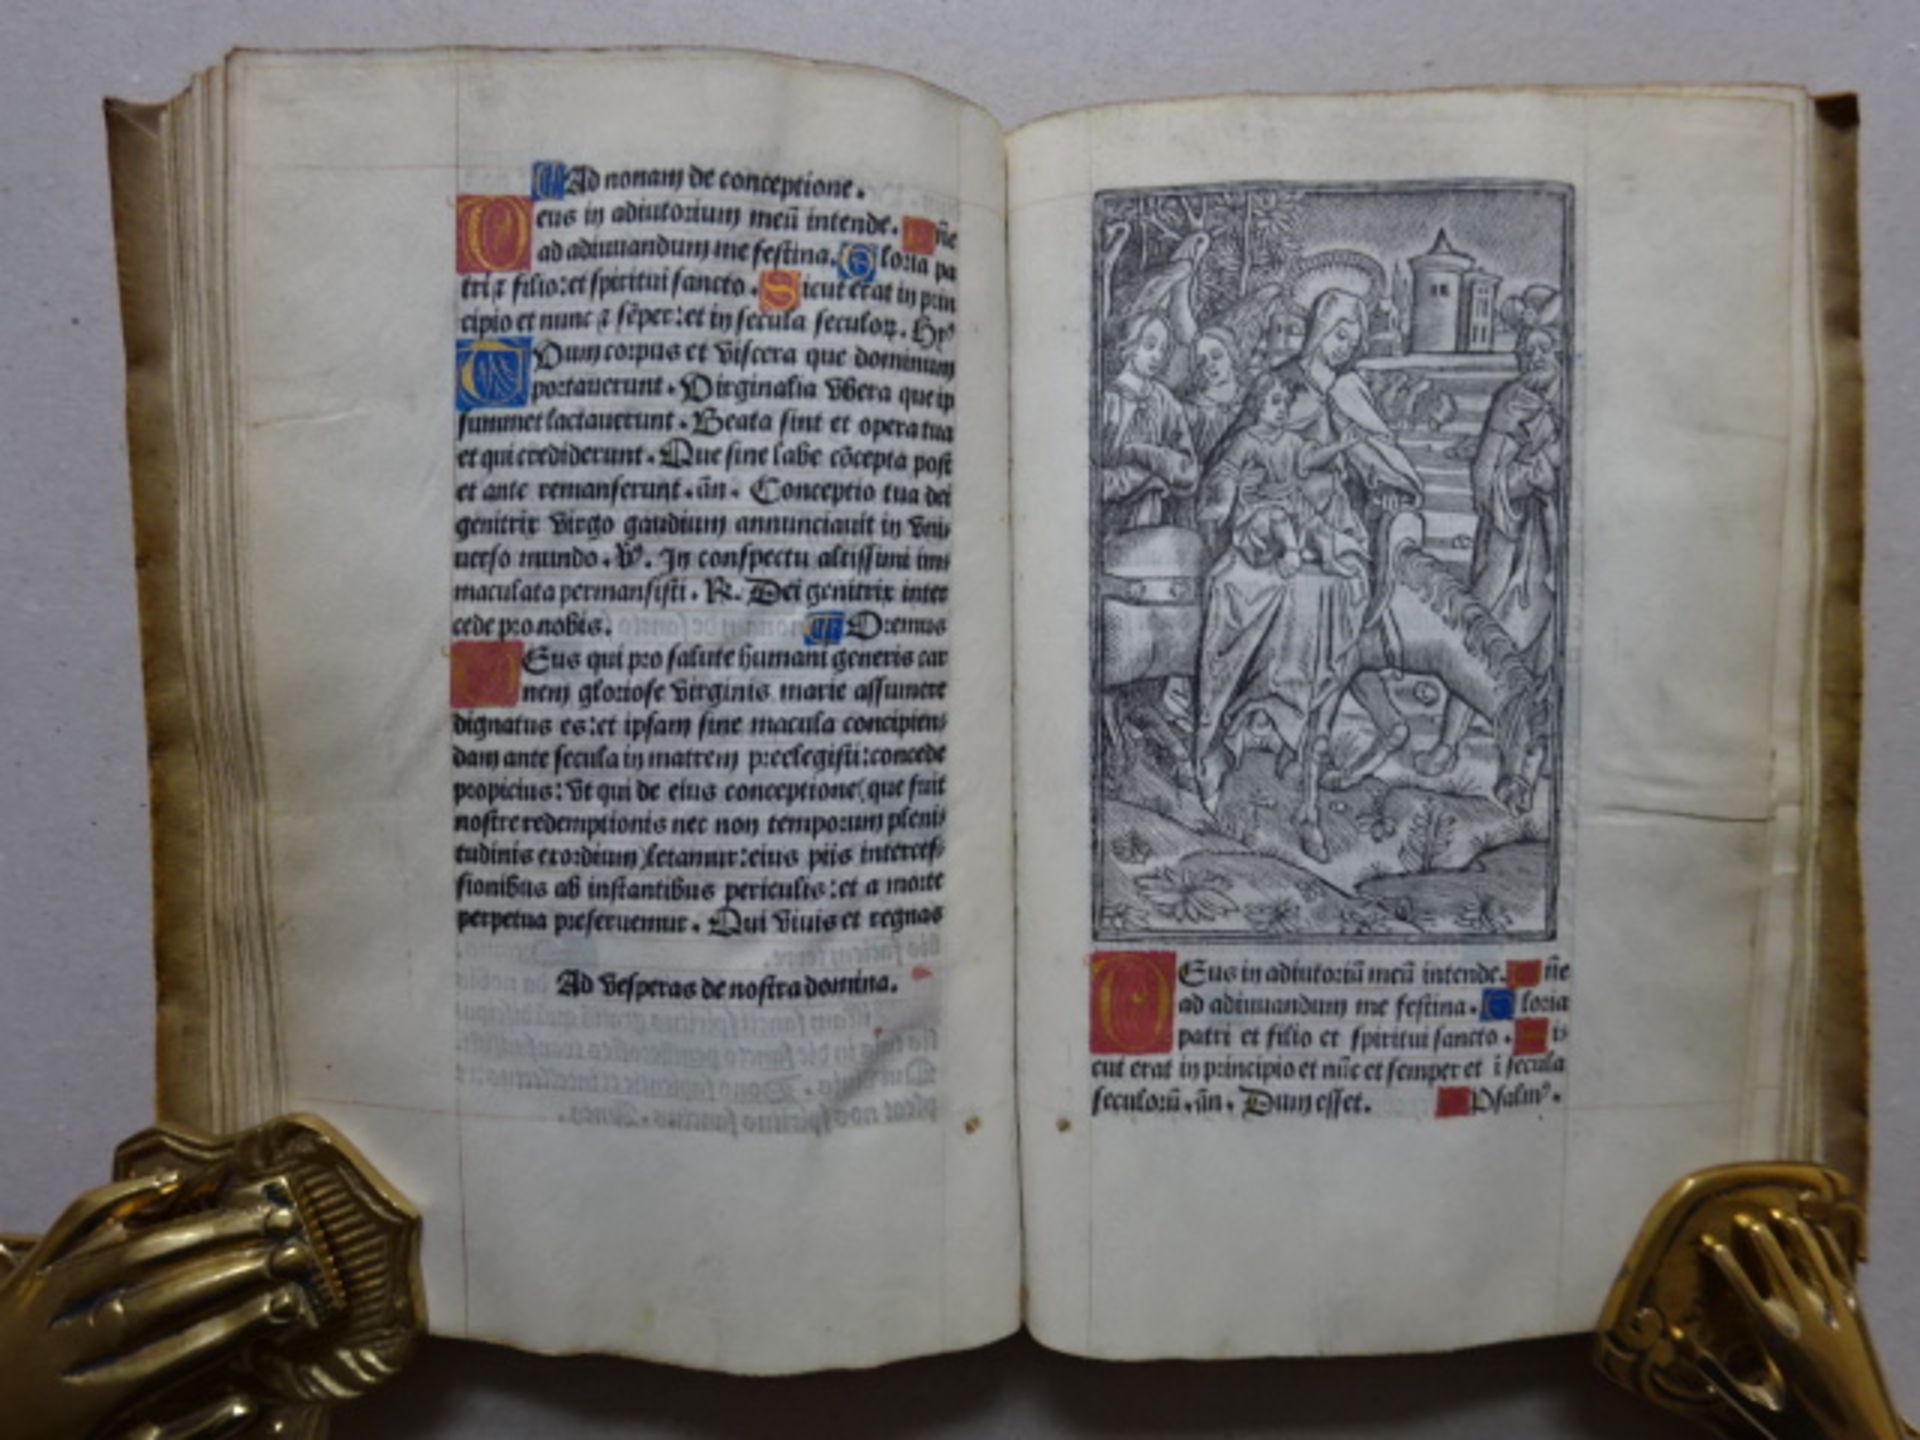 Ad nonam de conceptione.
Deus in adiutorium meū intende. Dn̄e
ad adiuuandum me festina. Gloria pa
tri ⁊ filio: et spiritui sancto. Sicut erat in prin
cipio et nunc ⁊ sēper: et in secula seculoꝝ. Hpꝰ
Tuum corpus et viscera que dominum
portauerunt. Virginalia vbera que ip
summet lactauerunt. Beata sint et opera tua
et qui crediderunt. Que sine labe cōcepta post
et ante remanserunt. an̄. Conceptio tua dei
genitrix virgo gaudium annunciauit in vni
uerso mundo. V̷. In conspectu altissimi im
maculata permansisti. R. Dei genitrix inter
cede pro nobis. Oremus
DEus qui pro salute humani generis car
nem gloriose virginis marie assumere
dignatus es: et ipsam sine macula concipien
dam ante secula in matrem preelegisti: concede
propicius: vt qui de eius conceptione (que fuit
nostre redemptionis nec non temporum pleni
tudinis exordium) letamur: eius piis interces
sionibus ab instantibus periculis: et a morte
perpetua preseruemur. Qui viuis et regnas
Ad vesperas de nostra domina.
DEus in adiutoriū meū intende. Dn̄e
ad adiuuandum me festina. Gloria
patri et filio et spiritui sancto. Sis
cut erat in principio et nūc et semper et ī secula
seculorū. an̄. Dum esset. Psalmꝰ.